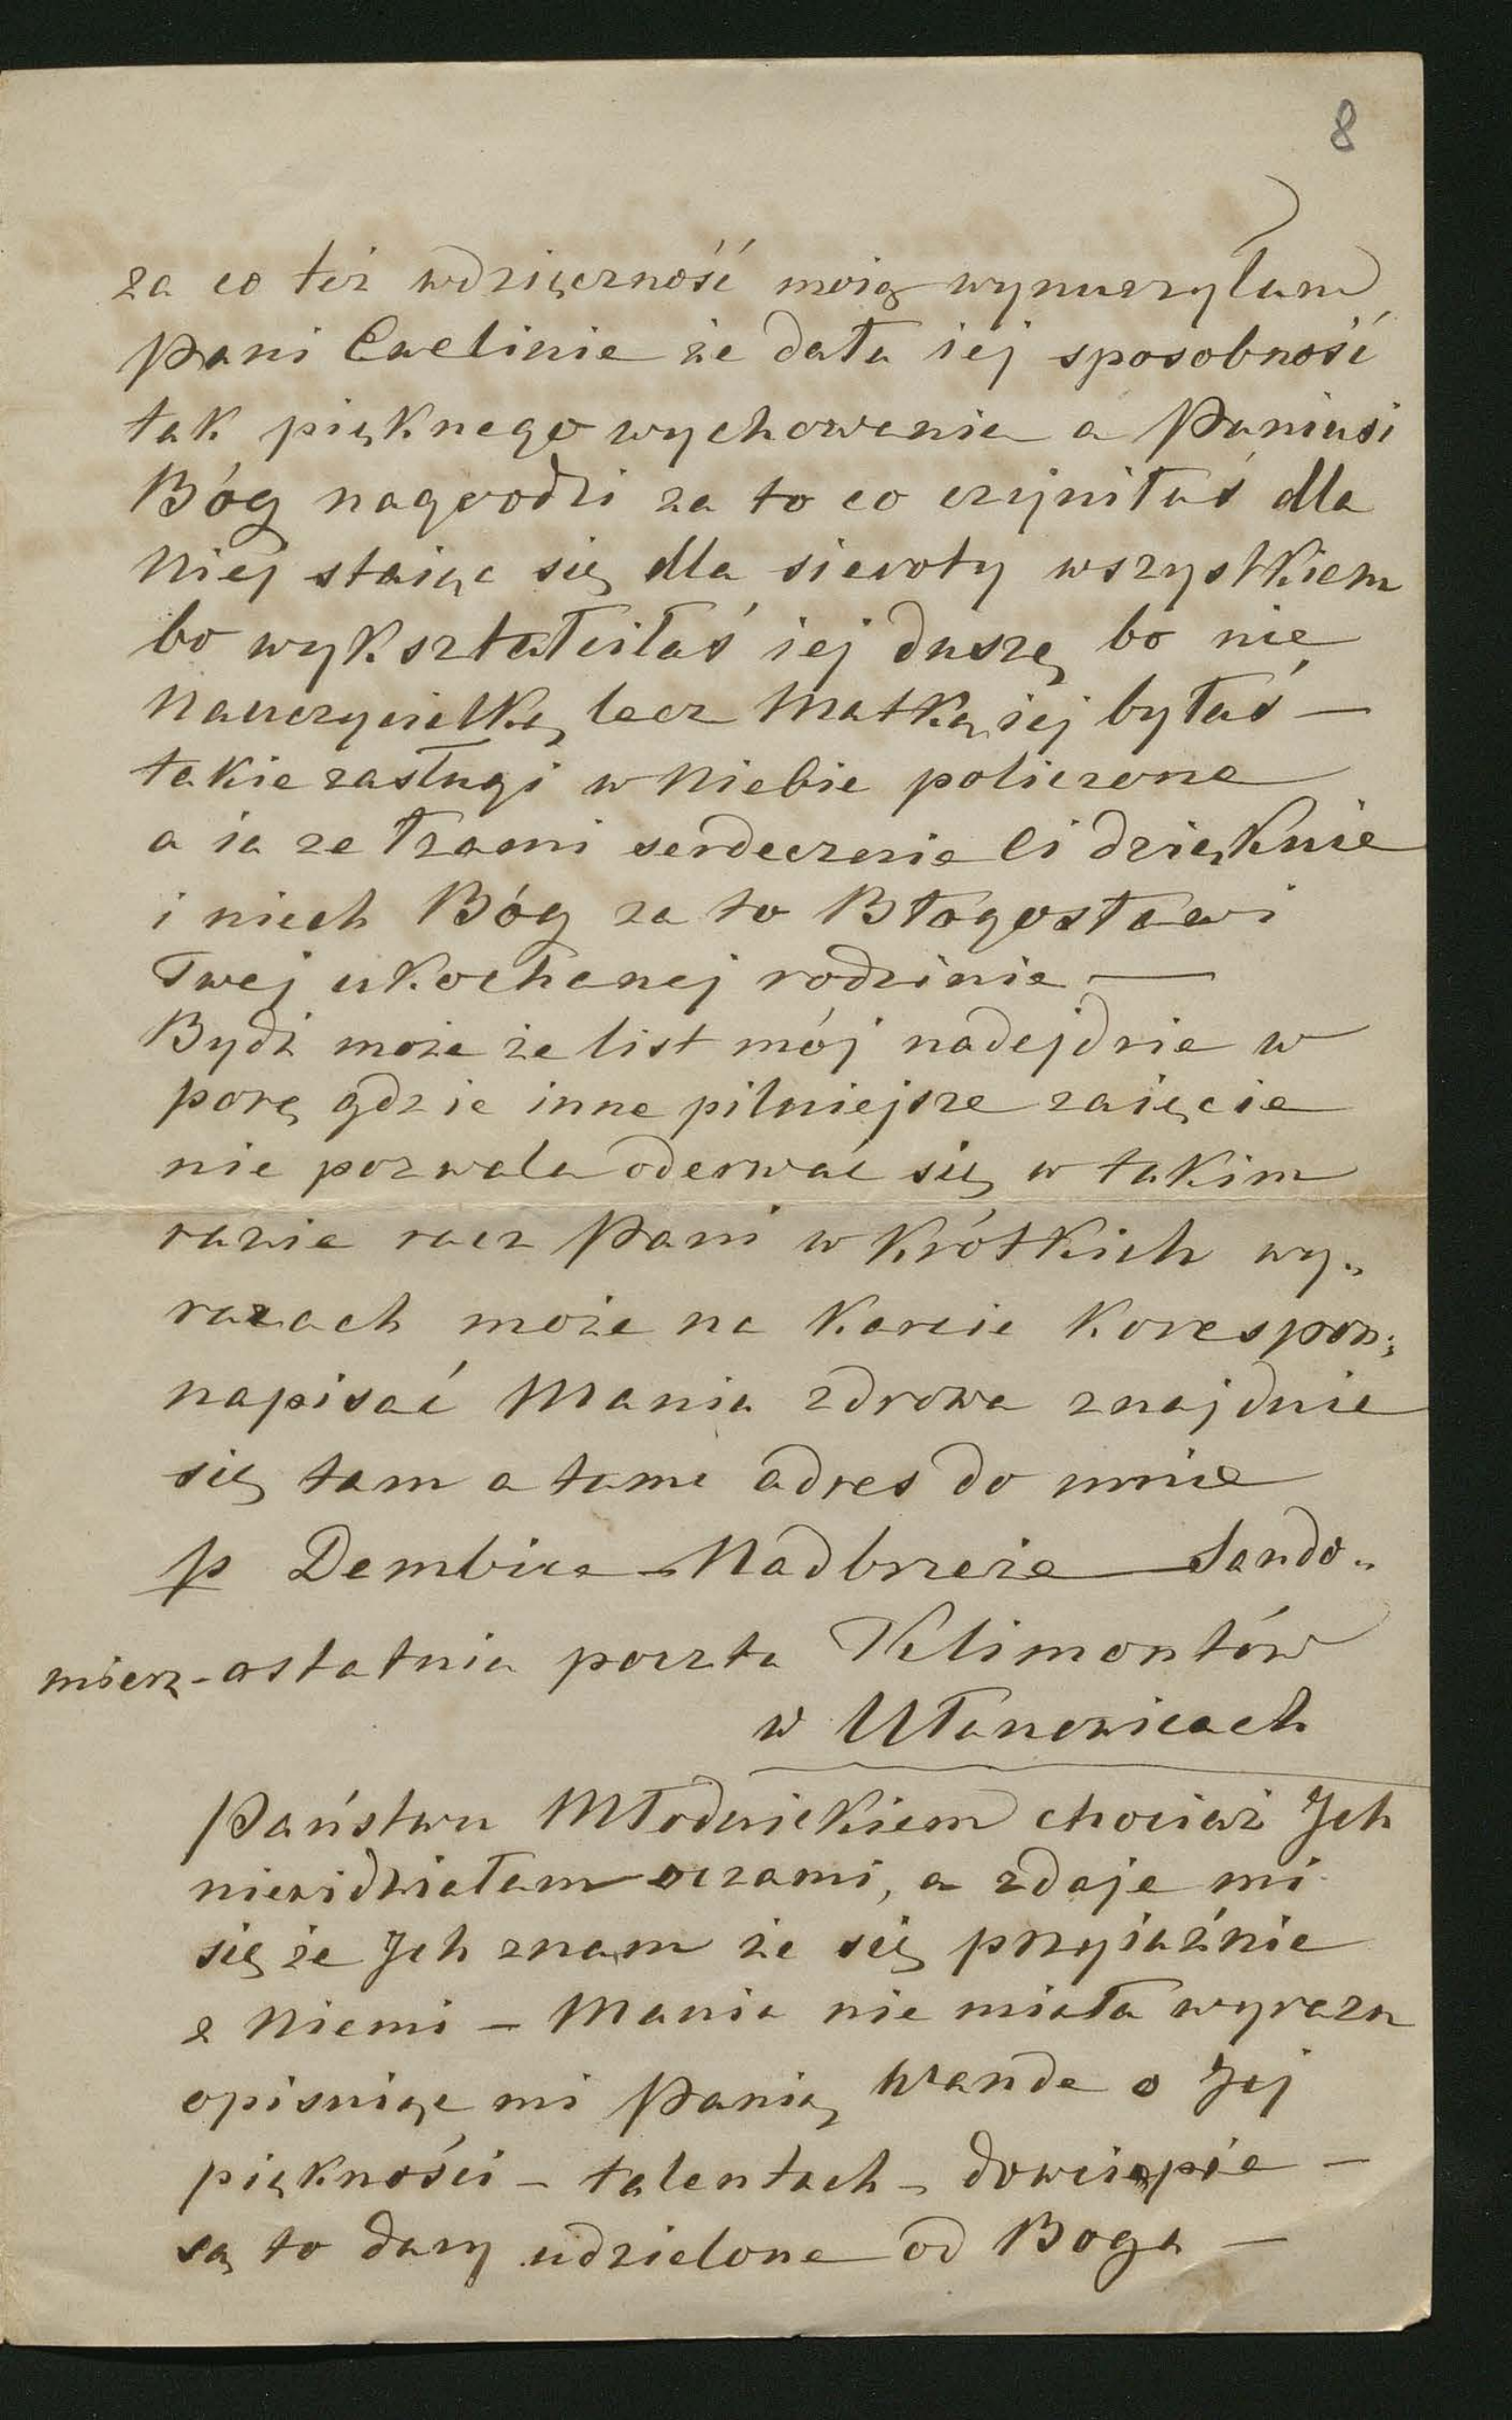 8
za co też wdzięczność moią wynurzyłam
Pani Ewelinie że dała iej sposobność
tak pięknego wychowania a Paniusi
Bóg nagrodzi za to co czyniłaś dla
Niej staiąc się dla sieroty wszystkiem
bo wykształciłaś iej duszę bo nie
Nauczycielką lecz Matką iej byłaś —
takie zasługi w Niebie policzone
a ia ze łzami serdecznie Ci dziękuie
i niech Bóg za to Błogosławi
Twej ukochanej rodzinie —
Bydź może że list mój nadejdzie w
porę gdzie inne pilniejsze zaięcie
nie pozwala oderwać się w takim
razie racz Pani w krótkich wy„
razach może na karcie korespon„
napisać Mania zdrowa znajduie
się tam a tam adres do mnie
p Dembica – Nadbrzezie — Sando„
mierz – ostatnia poczta Klimontów
w Ułanowicach
Państwu Młodnickiem chociaż Ich
niewidziałam oczami, a zdaje mi
się że Ich znam że się przyiaźnie
z Niemi – Mania nie miała wyrazu
opisuiąc mi Panią Wande o Jej
piękności – talentach – dowcipie –
są to dary udzielone od Boga —